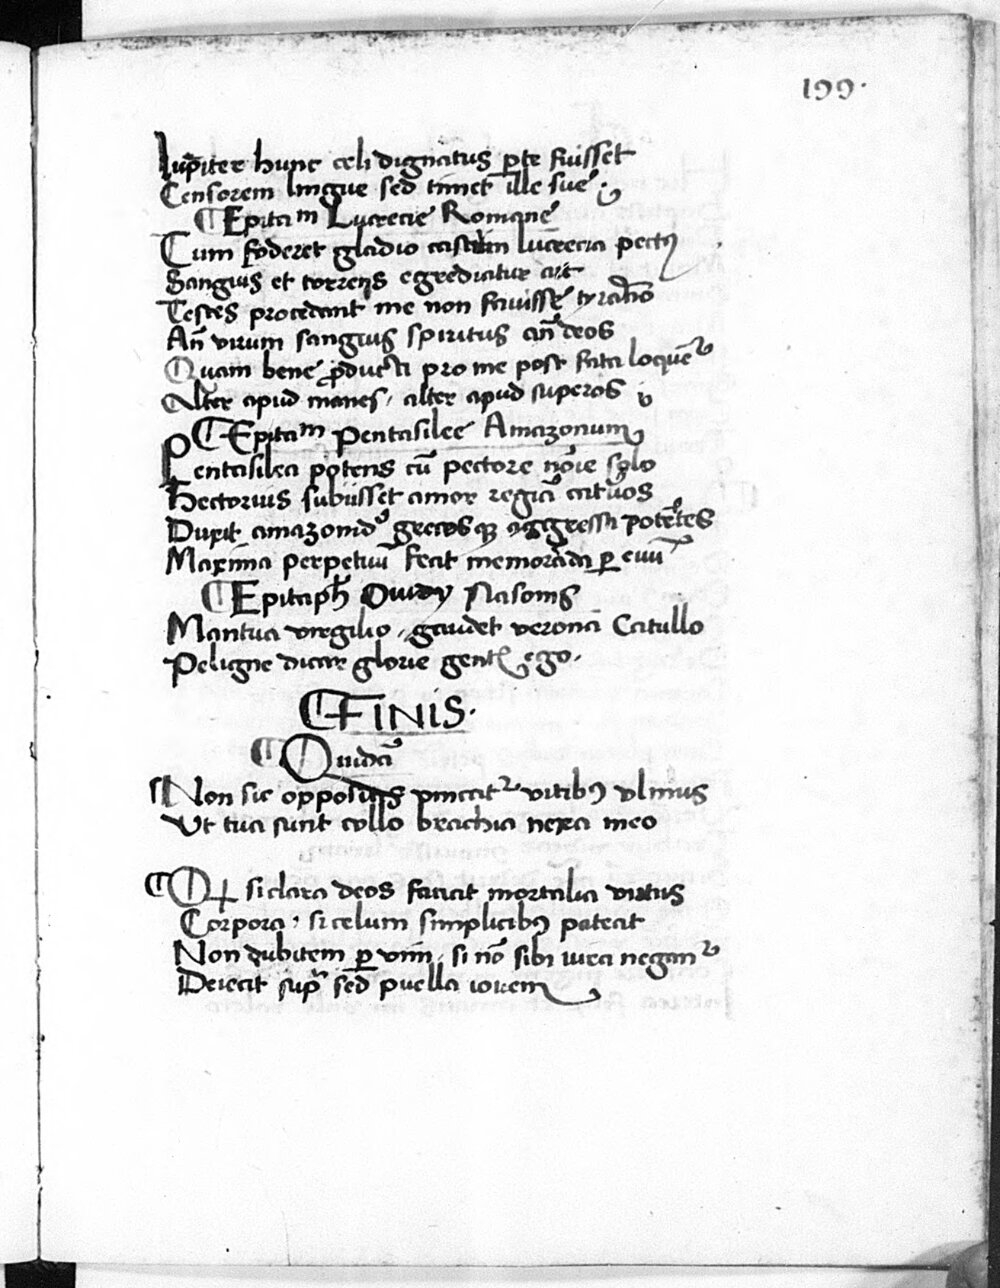 199.
Iupiter hunc celi dignatus pte fuisset
Censorem lingue sed timet ille sue.
Epitam Lucrecie Romane
Cum foderet gladio castum lucrecia pectꝯ
Sanguis et torrens egrediatur ait
Testes procedant me non fauisse tyrāno
An̄ virum sanguis spiritus an̄ deos
Quam bene producti pro me post fata loquent᷑
Alter apud manes, alter apud superos
Epitam Pentasilee Amazonum
Pentasilea potens cū pectore nōie solo
Hectorius subiisset amor regia cateruos
Duxit amazonid grecosqꝫ aggressa potētes
Maxima perpetuū fecit memorāda ꝑ euū
Epitaph Ouidy Nasonis
Mantua virgilio, gaudet verona Catullo
Peligne dicar glorie gentꝭ ego.
FINIS.
Ouidiꝰ
Non sic oppositis vincitᷣ vitibꝯ vlmus
Vt tua sunt collo brachia nexa meo
si clara deos faciat mortalia virtus
Corpora, si celum simplicibꝯ pateat
Non dubitem ꝑ vim, si nō sibi iura negant᷑
Deiecit sup sed puella iouem